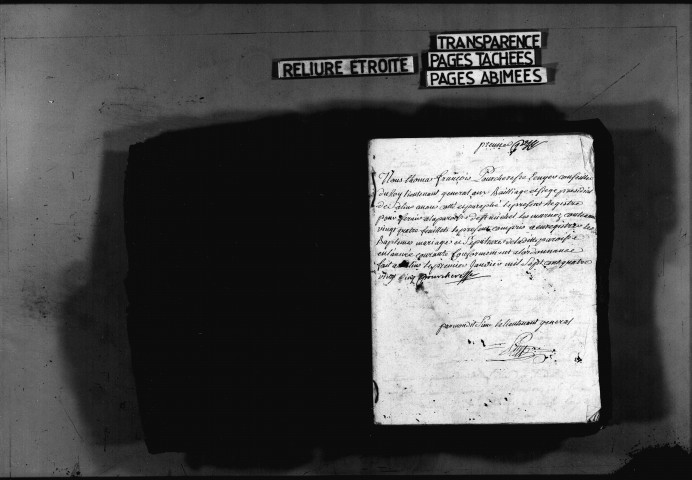 RELIURE ETROITE
TRANSPARENCE
PAGES TACHEES
PAGES ABIMEES
premier
Nous thomas françois Pourcheresse Ecuyer conseiller
du Roy lieutenant general aux Bailliage et siege presidial
de avons cotté et paraphé le present Registre
pour servir a la parroisse de st michel les contenant
vingt quatre feuillets le present compris a enregistrer les
Baptemes mariages et Sepultures de laditte parroisse
en l'année courante Conformement a l'ordonnance
fait a le premier Janvier mil sept cent quatre
vingt cinq Pourcheresse
par mondit Sieur le lieutenant general